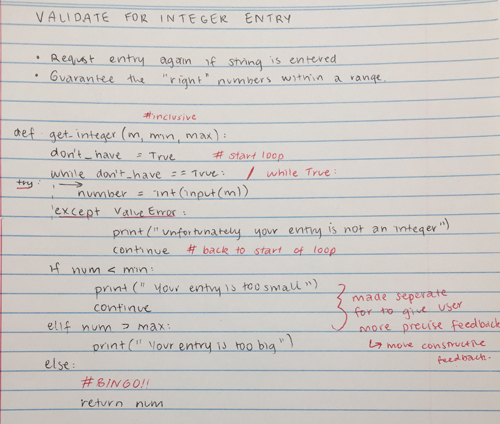 VALIDATE FOR INTEGER ENTRY
• Request entry again if string is entered
• Guarantee the "right" numbers within a range.
#inclusive
def get_integer(m, min, max):
don't_have = True # start loop
while don't_have == True: / while True:
try: → number = int(input(m))
except Value Error:
print("Unfortunately your entry is not an integer")
continue # back to start of loop
if num < min:
print(" Your entry is too small")
continue
elif num > max:
print(" Your entry is too big")
made seperate
for to give user
more precise feedback
↳ more constructive
feedback.
else:
#BINGO!!
return num